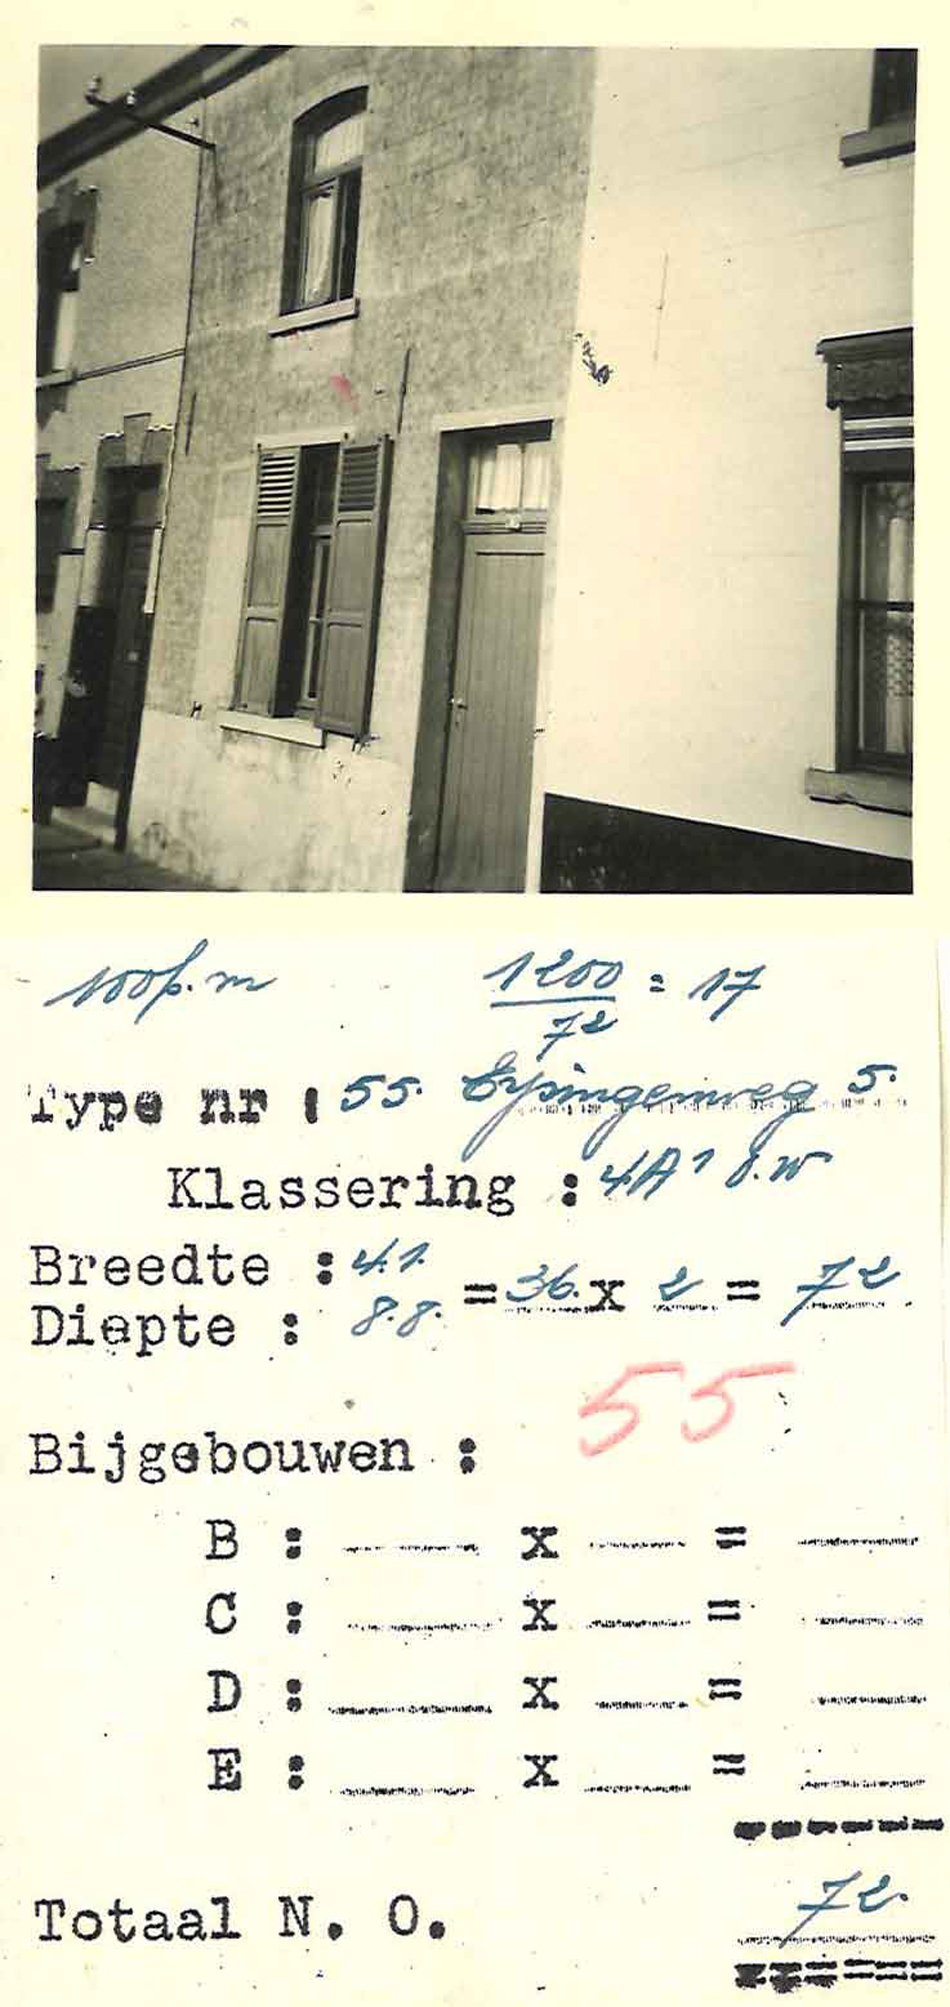 100f.m 1200/72 = 17
Type nr : 55. Eysingenweg 5.
Klassering : 4A1 8.W
Breedte : 4.1.
= 36. x 2 = 72
Diepte : 8.8.
55
Bijgebouwen :
B : x =
C : x =
D : x =
E : x =
Totaal N. O. 72.